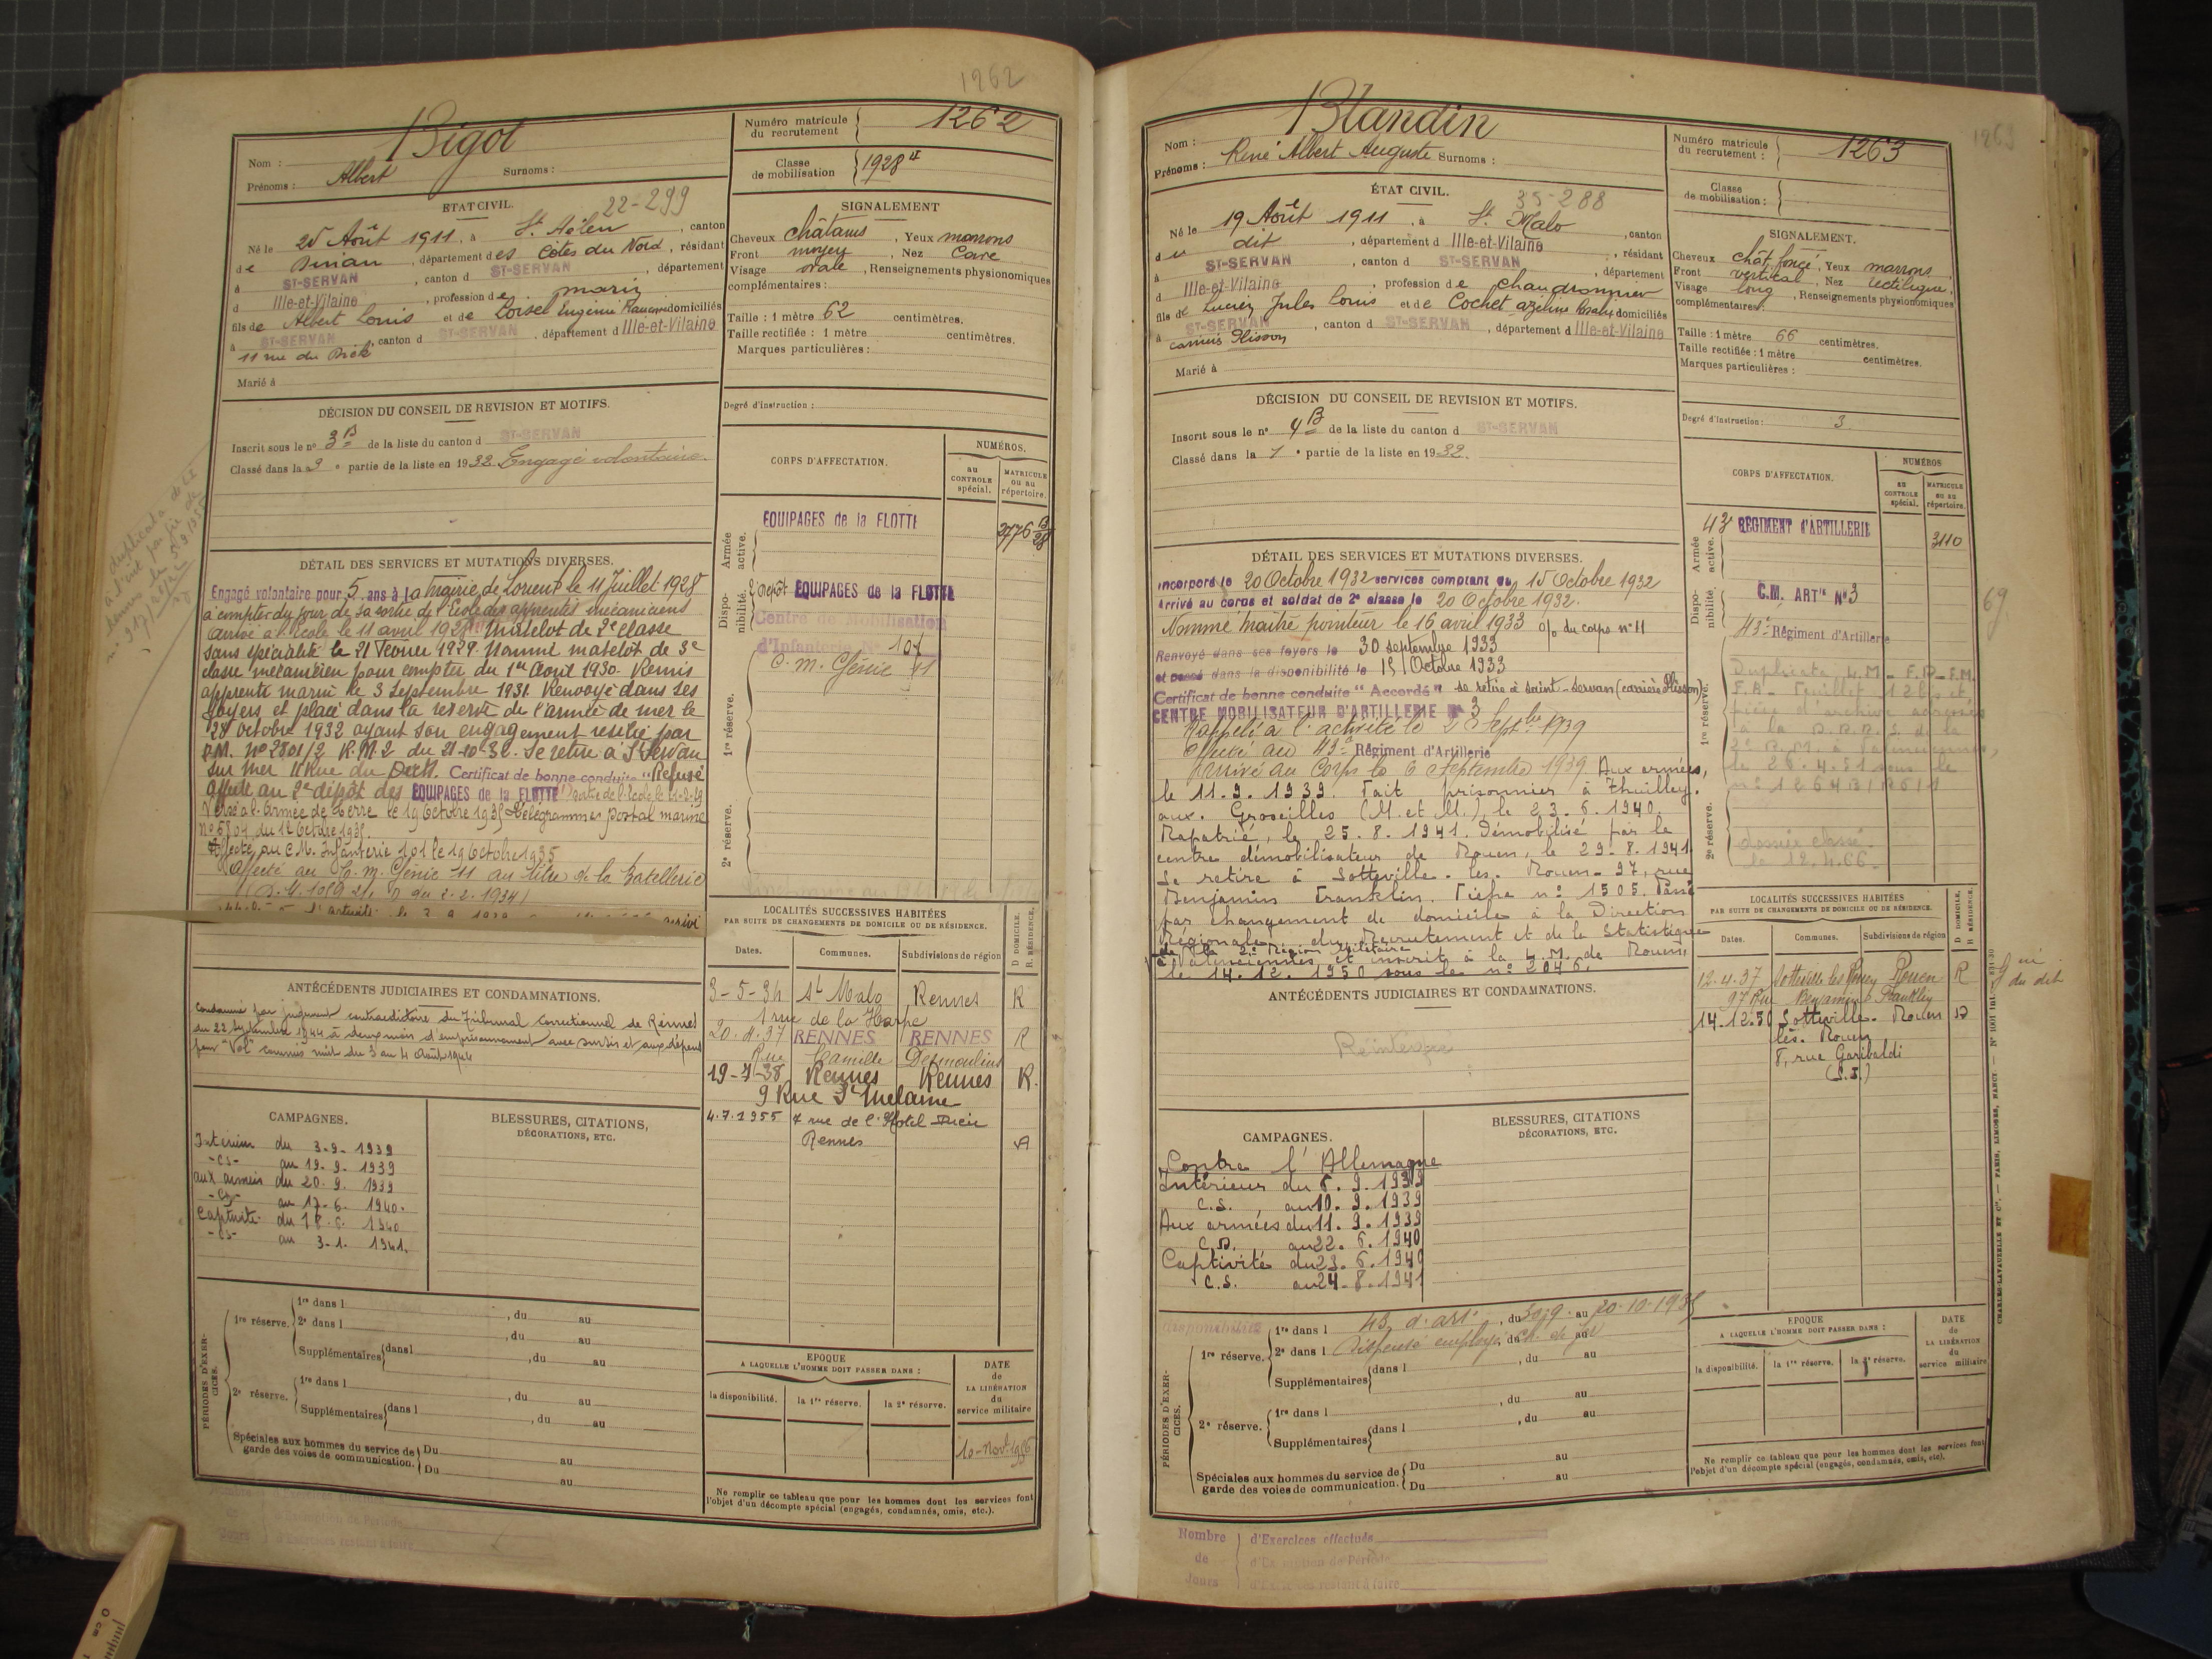 1262
Nom : Bigot
Prénoms : Albert Surnoms :
Numéro matricule du recrutement 1262
Classe de mobilisation 1928
ÉTAT CIVIL. 22-299
Né le 25 Août 1911, à St Hélen, canton
de Dinan, département des Côtes du Nord, résidant
à ST-SERVAN, canton d ST-SERVAN, département
d Ille-et-Vilaine, profession de marin
fils de Albert Louis et de Loisel Eugénie domiciliés
à ST-SERVAN, canton d ST-SERVAN, département d Ille-et-Vilaine
11 rue du
Marié à
SIGNALEMENT
Cheveux châtains, Yeux marrons
Front moyen, Nez Cave
Visage ovale, Renseignements physionomiques
complémentaires :
Taille : 1 mètre 62 centimètres.
Taille rectifiée : 1 mètre centimètres.
Marques particulières :
Degré d'instruction :
DÉCISION DU CONSEIL DE REVISION ET MOTIFS.
Inscrit sous le n° 3 B de la liste du canton d ST-SERVAN
Classé dans la 3e partie de la liste en 1932. Engagé volontaire.
CORPS D'AFFECTATION.
NUMÉROS.
au CONTROLE spécial.
MATRICULE ou au répertoire.
Armée active.
EQUIPAGES de la FLOTTE
3776 B/28
Disponibilité.
2e Dépôt EQUIPAGES de la FLOTTE
Centre de Mobilisation
d'Infanterie N° 101
C. m. Génie 11
1re réserve.
2e réserve.
DÉTAIL DES SERVICES ET MUTATIONS DIVERSES.
Engagé volontaire pour 5 ans à la Mairie de Lorient le 11 Juillet 1928
à compter du jour de sa sortie de l'Ecole des apprentis mécaniciens
arrivé à l'école le 11 avril 1928 Matelot de 2e classe
sans spécialité le 21 Février 1929. Nommé matelot de 3e
classe mécanicien pour compter du 1er Avril 1930. Remis
apprenti marin le 3 Septembre 1931. Renvoyé dans ses
foyers et placé dans la réserve de l'armée de mer le
28 octobre 1932 ayant son engagement résilié par
D.M. n° 2801/2 R.M.2 du 21-10-32. Se retire à St Servan
sur mer 11 Rue du Certificat de bonne conduite "Refusé
Affecté au 2e dépôt des EQUIPAGES de la FLOTTE
Versé à l'Armée de terre le 19 Octobre 1935 Télégramme postal marine
N° 5804 du 12 Octobre 1935.
Affecté au C.M. Infanterie 101 le 19 Octobre 1935
Affecté au C. m. Génie 11 au titre de la batellerie
ANTÉCÉDENTS JUDICIAIRES ET CONDAMNATIONS.
Condamné par jugement contradictoire du Tribunal Correctionnel de Rennes
du 22 Septembre 1944 à deux mois d'emprisonnement avec sursis et aux dépens
pour "Vol" commis nuit du 3 au 4 Août 1944
LOCALITÉS SUCCESSIVES HABITÉES
PAR SUITE DE CHANGEMENTS DE DOMICILE OU DE RÉSIDENCE.
D DOMICILE. R RÉSIDENCE.
Dates. Communes. Subdivisions de région
3-5-34 St Malo Rennes R
1 rue de la Harpe
20.4.37 RENNES RENNES R
Rue Camille Desmoulins
19-7-38 Rennes Rennes R.
9 Rue St Melaine
4.7.1955 7 rue de l'Hotel Dieu
Rennes
CAMPAGNES.
Intérieur du 3-9-1939
-cs- au 19-9-1939
aux armées du 20.9.1939
-cs- au 17-6.1940.
Captivité du 18.6.1940
-cs- au 3-1.1941.
BLESSURES, CITATIONS, DÉCORATIONS, ETC.
PÉRIODES D'EXERCICES.
1re réserve. 1re dans l , du au
2e dans l , du au
Supplémentaires dans l , du au
2e réserve. 1re dans l , du au
Supplémentaires dans l , du au
Spéciales aux hommes du service de garde des voies de communication. Du au
Du au
EPOQUE
A LAQUELLE L'HOMME DOIT PASSER DANS :
la disponibilité. la 1re réserve. la 2e réserve.
DATE de LA LIBÉRATION du service militaire
Ne remplir ce tableau que pour les hommes dont les services font
l'objet d'un décompte spécial (engagés, condamnés, omis, etc.).
1263
Nom : Blandin
Prénoms : René Albert Auguste Surnoms :
Numéro matricule du recrutement : 1263
Classe de mobilisation :
ÉTAT CIVIL. 35-288
Né le 19 Août 1911, à St Malo, canton
du dit, département d Ille-et-Vilaine, résidant
à ST-SERVAN, canton d ST-SERVAN, département
d Ille-et-Vilaine, profession de chaudronnier
fils de Lucien Jules Louis et de Cochet Azeline domiciliés
à ST-SERVAN, canton d ST-SERVAN, département d Ille-et-Vilaine
Marié à
SIGNALEMENT.
Cheveux chât. foncé, Yeux marrons
Front vertical, Nez rectiligne,
Visage long, Renseignements physionomiques
complémentaires :
Taille : 1 mètre 66 centimètres.
Taille rectifiée : 1 mètre centimètres.
Marques particulières :
Degré d'instruction : 3
DÉCISION DU CONSEIL DE REVISION ET MOTIFS.
Inscrit sous le n° 4 B de la liste du canton d ST-SERVAN
Classé dans la 1e partie de la liste en 1932.
CORPS D'AFFECTATION.
NUMÉROS
au CONTROLE spécial.
MATRICULE ou au répertoire.
Armée active.
43e REGIMENT d'ARTILLERIE
3110
Disponibilité.
C.M. ARTie N° 3
43e Régiment d'Artillerie
69
1re réserve.
Duplicata L.M - F.P - F.M.
F.A - Feuillet 1265 et
pièce d'archive adressés
à la D.R.R.S. de la
2e R.M. à Valenciennes,
le 26.4.51 sous le
2e réserve.
dossier classé
le 12.4.66
DÉTAIL DES SERVICES ET MUTATIONS DIVERSES.
Incorporé le 20 Octobre 1932 services comptant du 15 Octobre 1932
Arrivé au corps et soldat de 2e classe le 20 Octobre 1932.
Nommé Maître pointeur le 16 avril 1933 o/o du corps n° 11
Renvoyé dans ses foyers le 30 septembre 1933
et passé dans la disponibilité le 15 Octobre 1933
Certificat de bonne conduite "Accordé" se retire à saint-servan (carrière Plisson)
CENTRE MOBILISATEUR D'ARTILLERIE N° 3
Rappelé à l'activité le 2 Septbre 1939
Affecté au 43e Régiment d'Artillerie
Arrivé au Corps le 6 septembre 1939 Aux armées,
le 11.9.1939. Fait prisonnier à Thuilley
aux Groseilles (M. et M.), le 23.6.1940.
Rapatrié, le 25.8.1941. Démobilisé par le
centre démobilisateur de Rouen, le 29-8-1941
Se retire à Sotteville-les-Rouen-97, rue
Benjamin Franklin. Fiche n° 1505. Passé
par changement de domicile à la Direction
Régionale du Recrutement et de la Statistique
de la 2e Région Militaire
à Valenciennes et inscrit à la L.M. de Rouen,
le 14.12.1950 sous le n° 2046.
ANTÉCÉDENTS JUDICIAIRES ET CONDAMNATIONS.
LOCALITÉS SUCCESSIVES HABITÉES
PAR SUITE DE CHANGEMENTS DE DOMICILE OU DE RÉSIDENCE.
D DOMICILE. R RÉSIDENCE.
Dates. Communes. Subdivisions de région
12.4.37 Sotteville les Rouen Rouen R
97 Rue Benjamin Franklin
14.12.50 Sotteville- Rouen D
lès-Rouen
8, rue Garibaldi
(S.I.)
CAMPAGNES.
Contre l'Allemagne
Intérieur du 6.9.1939
C.S. au 10.9.1939
Aux armées du 11.9.1939
C.D. au 22.6.1940
Captivité du 23.6.1940
C.S. au 24-8-1941
BLESSURES, CITATIONS DÉCORATIONS, ETC.
PÉRIODES D'EXERCICES.
disponibilité
1re réserve. 1re dans l 43 d'art, du 30.9 au 20-10-1935
2e dans l Dispensé employé ch. de fer du au
Supplémentaires dans l , du au
2e réserve. 1re dans l , du au
Supplémentaires dans l , du au
Spéciales aux hommes du service de garde des voies de communication. Du au
Du au
EPOQUE
A LAQUELLE L'HOMME DOIT PASSER DANS :
la disponibilité. la 1re réserve. la 2e réserve.
DATE de LA LIBÉRATION du service militaire
Ne remplir ce tableau que pour les hommes dont les services font
l'objet d'un décompte spécial (engagés, condamnés, omis, etc.).
CHARLES-LAVAUZELLE ET Cie. — PARIS, LIMOGES, NANCY
Nombre de Jours
d'Exercices effectués
d'Exemption de Période
d'Exercices restant à faire
0 cm